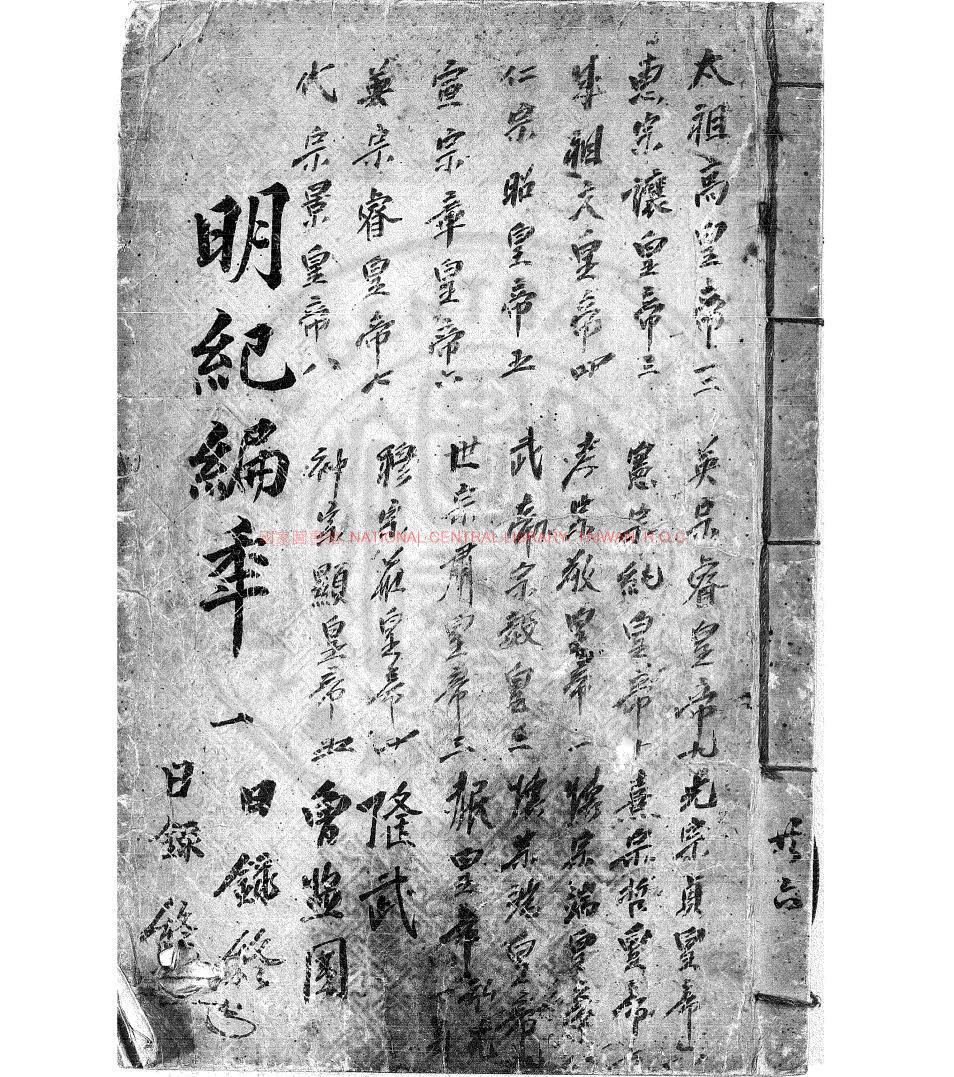 太祖高皇帝一二 英宗睿皇帝九 光宗貞皇帝
惠宗讓皇帝三 憲宗純皇帝十 熹宗哲皇帝
成祖文皇帝四 孝宗敬皇帝一
仁宗昭皇帝五 武帝宗毅皇
宣宗章皇帝六 世宗肅皇帝三
英宗睿皇帝七 穆宗莊皇帝 隆武
代宗景皇帝八 神宗顯皇帝 魯監國
明紀編年 一 目錄終
目錄終
共六
國家圖書館 NATIONAL CENTRAL LIBRARY, TAIWAN, R.O.C.